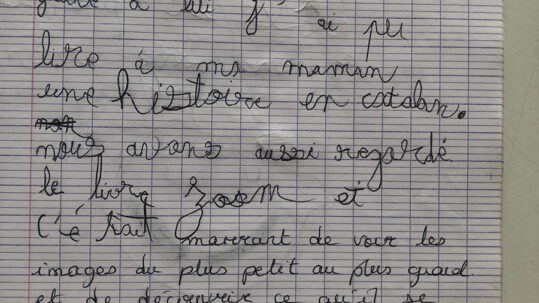 grâce à lui j'ai pu
lire à ma maman
une histoire en catalan.
nous avons aussi regardé
le livre zoom et
C'é tait marrant de voir les
images du plus petit au plus grand.
et de découvrir ce qu'il se